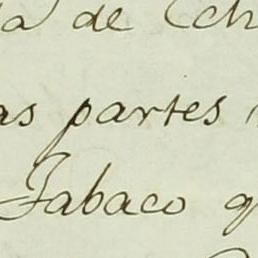 da de Ech
as partes
Tabaco q